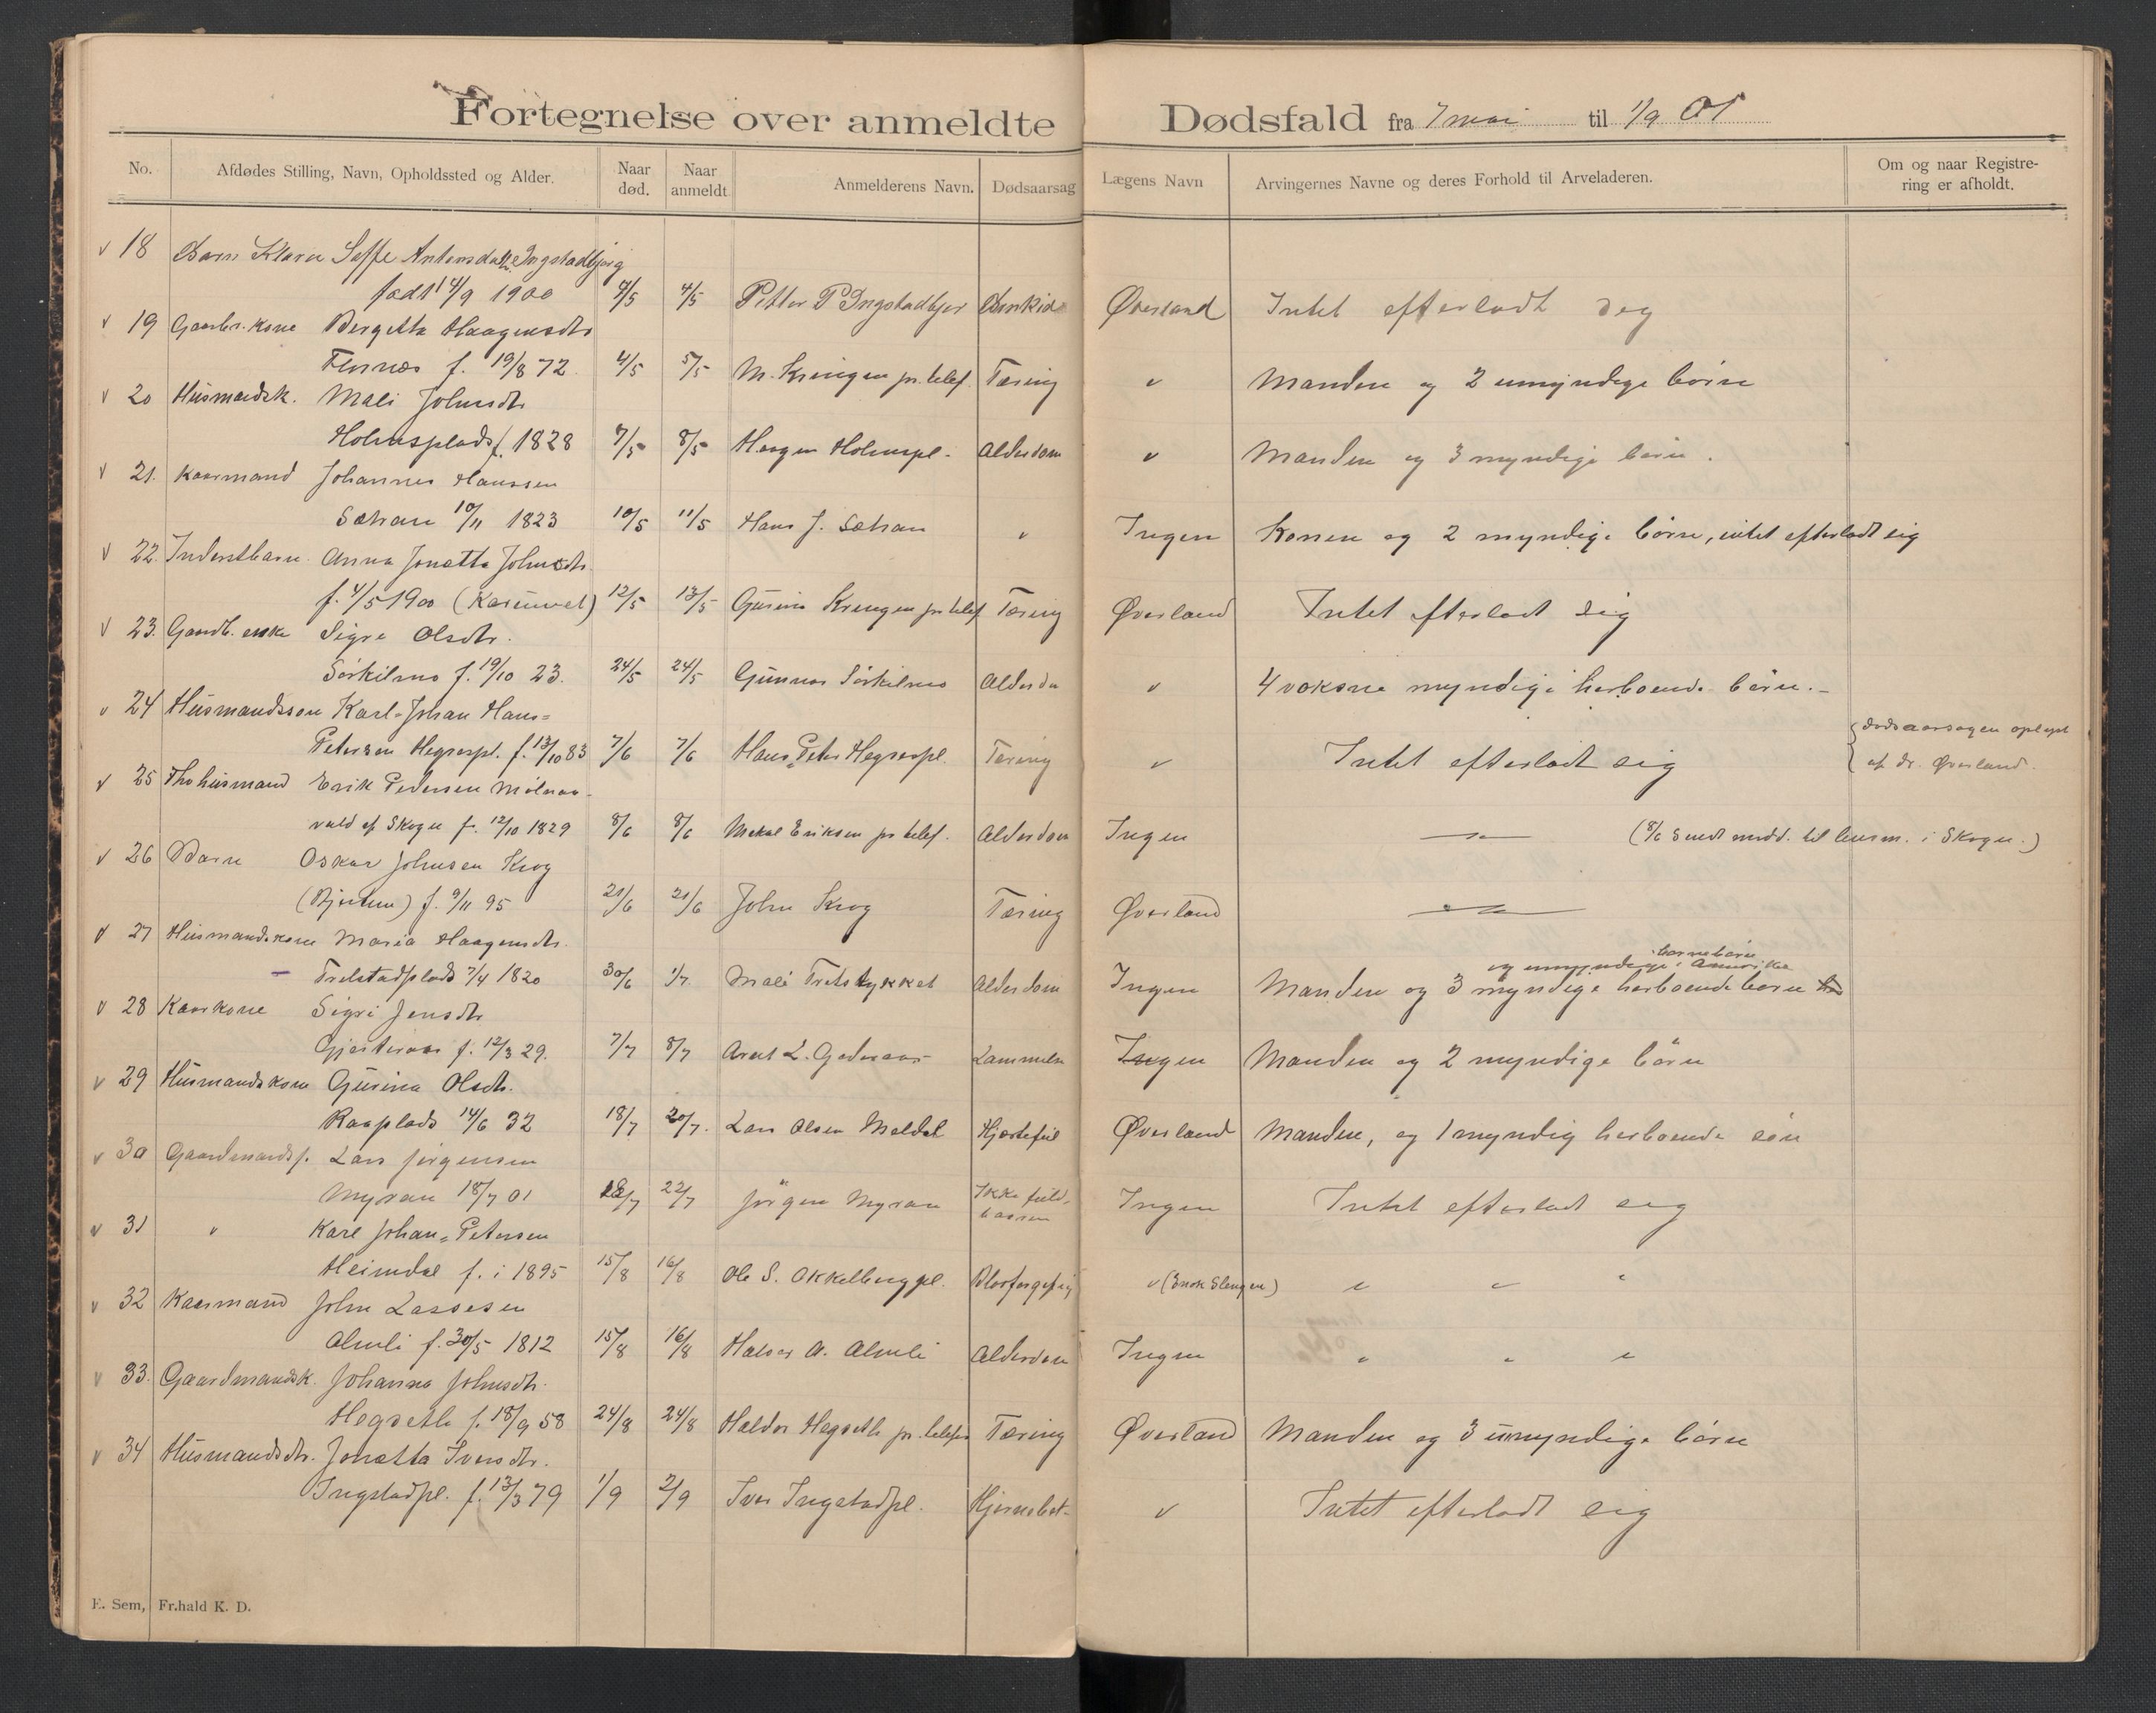 Fortegnelse over anmeldte Dødsfald fra 7 mai til 1/9 01
No. Afdødes Stilling, Navn, Opholdssted og Alder. Naar død. Naar anmeldt Anmelderens Navn. Dødsaarsag Lægens Navn Arvingernes Navne og deres Forhold til Arveladeren. Om og naar Registrering er afholdt.
v 18 Barn Klara Antonsdatter Ingstadbjørg
født 14/9 1900 4/5 Petter P Ingstadbjer Øverland Intet efterladt seg
v 19 Gaardbr. kone Bergitta Haagensdtr
Flornes f. 19/8 72 4/5 5/5 M. Kringen pr. telef. Tæring v Manden og 2 umyndige børn
v 20 Husmandsk. Mali Johnsdtr
Holmsplads f. 1828 7/5 8/5 Haagen Holmspl. Alderdom v Manden og 3 myndige børn.
v 21. Kaarmand Johannes Hanssen
Sætran 10/11 1823 10/5 11/5 Hans J. Sætran " Ingen Konen og 2 myndige børn, intet efterladt sig
v 22. Inderstbarn Anna Jonetta Johnsdtr.
f. 4/5 1900 (Kasunvel) 12/5 13/5 Gurina Kringen pr telef Tæring Øverland Intet efterladt sig
v 23. Gaardb. enke Sigre Olsdtr.
Sörkilmo f. 19/10 23. 24/5 24/5 Gunnar Sörkilmo Alderdom v 4 voksne myndige herboende børn.-
v 24 Husmandssøn Karl-Johan Hans=
Petersen Hegrespl. f. 13/10 83 7/6 7/6 Hans Peter Hegrespl. Tæring v Intet efterladt sig {dødsaarsagen oplyst
{af dr. Øverland.
v 25 Fhv husmand Erik Pedersen Mölnaa-
vald af Skogn f. 12/10 1829 8/6 8/6 Mekal Eriksen pr telef. Alderdom Ingen — " — (8/6 Sendt medd. til lensm. i Skogn.)
v 26 Barn Oskar Johnsen Krog
(Bjertem) f. 9/11 95 21/6 21/6 John Krog Tæring Øverland — " —
v 27 Husmandskone Maria Haagensdtr.
og umyndige barnebørn i Amerika
Trelstadplads 7/4 1820 30/6 1/7 Mali Tretstykket Alderdom Ingen Manden og 3 myndige herboende børn
v 28 Kaarkone Sigri Jensdtr
Gjesteraas f. 12/3 29. 7/7 8/7 Arnt L. Lammelse Ingen Manden og 2 myndige børn
v 29 Husmandskone Gurina Olsdtr.
Raaplads 14/6 32 18/7 20/7. Lars Olsen Meldal Hjertefeil Øverland Manden, og 1 myndig herboende søn
v 30 Gaardmands. Lars Jørgensen
Myran 18/7 01 22/7 Jørgen Myran Ikke fuldbaaren Ingen Intet efterladt sig
v 31 " Karl Johan=Petersen
Heimdal f. i 1895 15/8 16/8 Ole S. Okkelbergpl. Blodforgiftig v (Enok Slengen) " " "
v 32 Kaarmand John Lassesen
Almli f. 30/5 1812 15/8 16/8 Halvor A. Almli Alderdom Ingen " " "
v 33. Gaardmandsk. Johanna Johnsdtr.
Hegseth f. 18/9 58 24/8 24/8 Haldor Hegseth pr. telefon Tæring Øverland Manden og 3 umyndige børn
v 34 Husmandsdtr. Jonetta Iversdtr.
Ingstadpl. f. 13/3 79 1/9 2/9 Iver Ingstadpl. Hjernebet- v Intet efterladt sig
E. Sem, Fr.hald K. D.